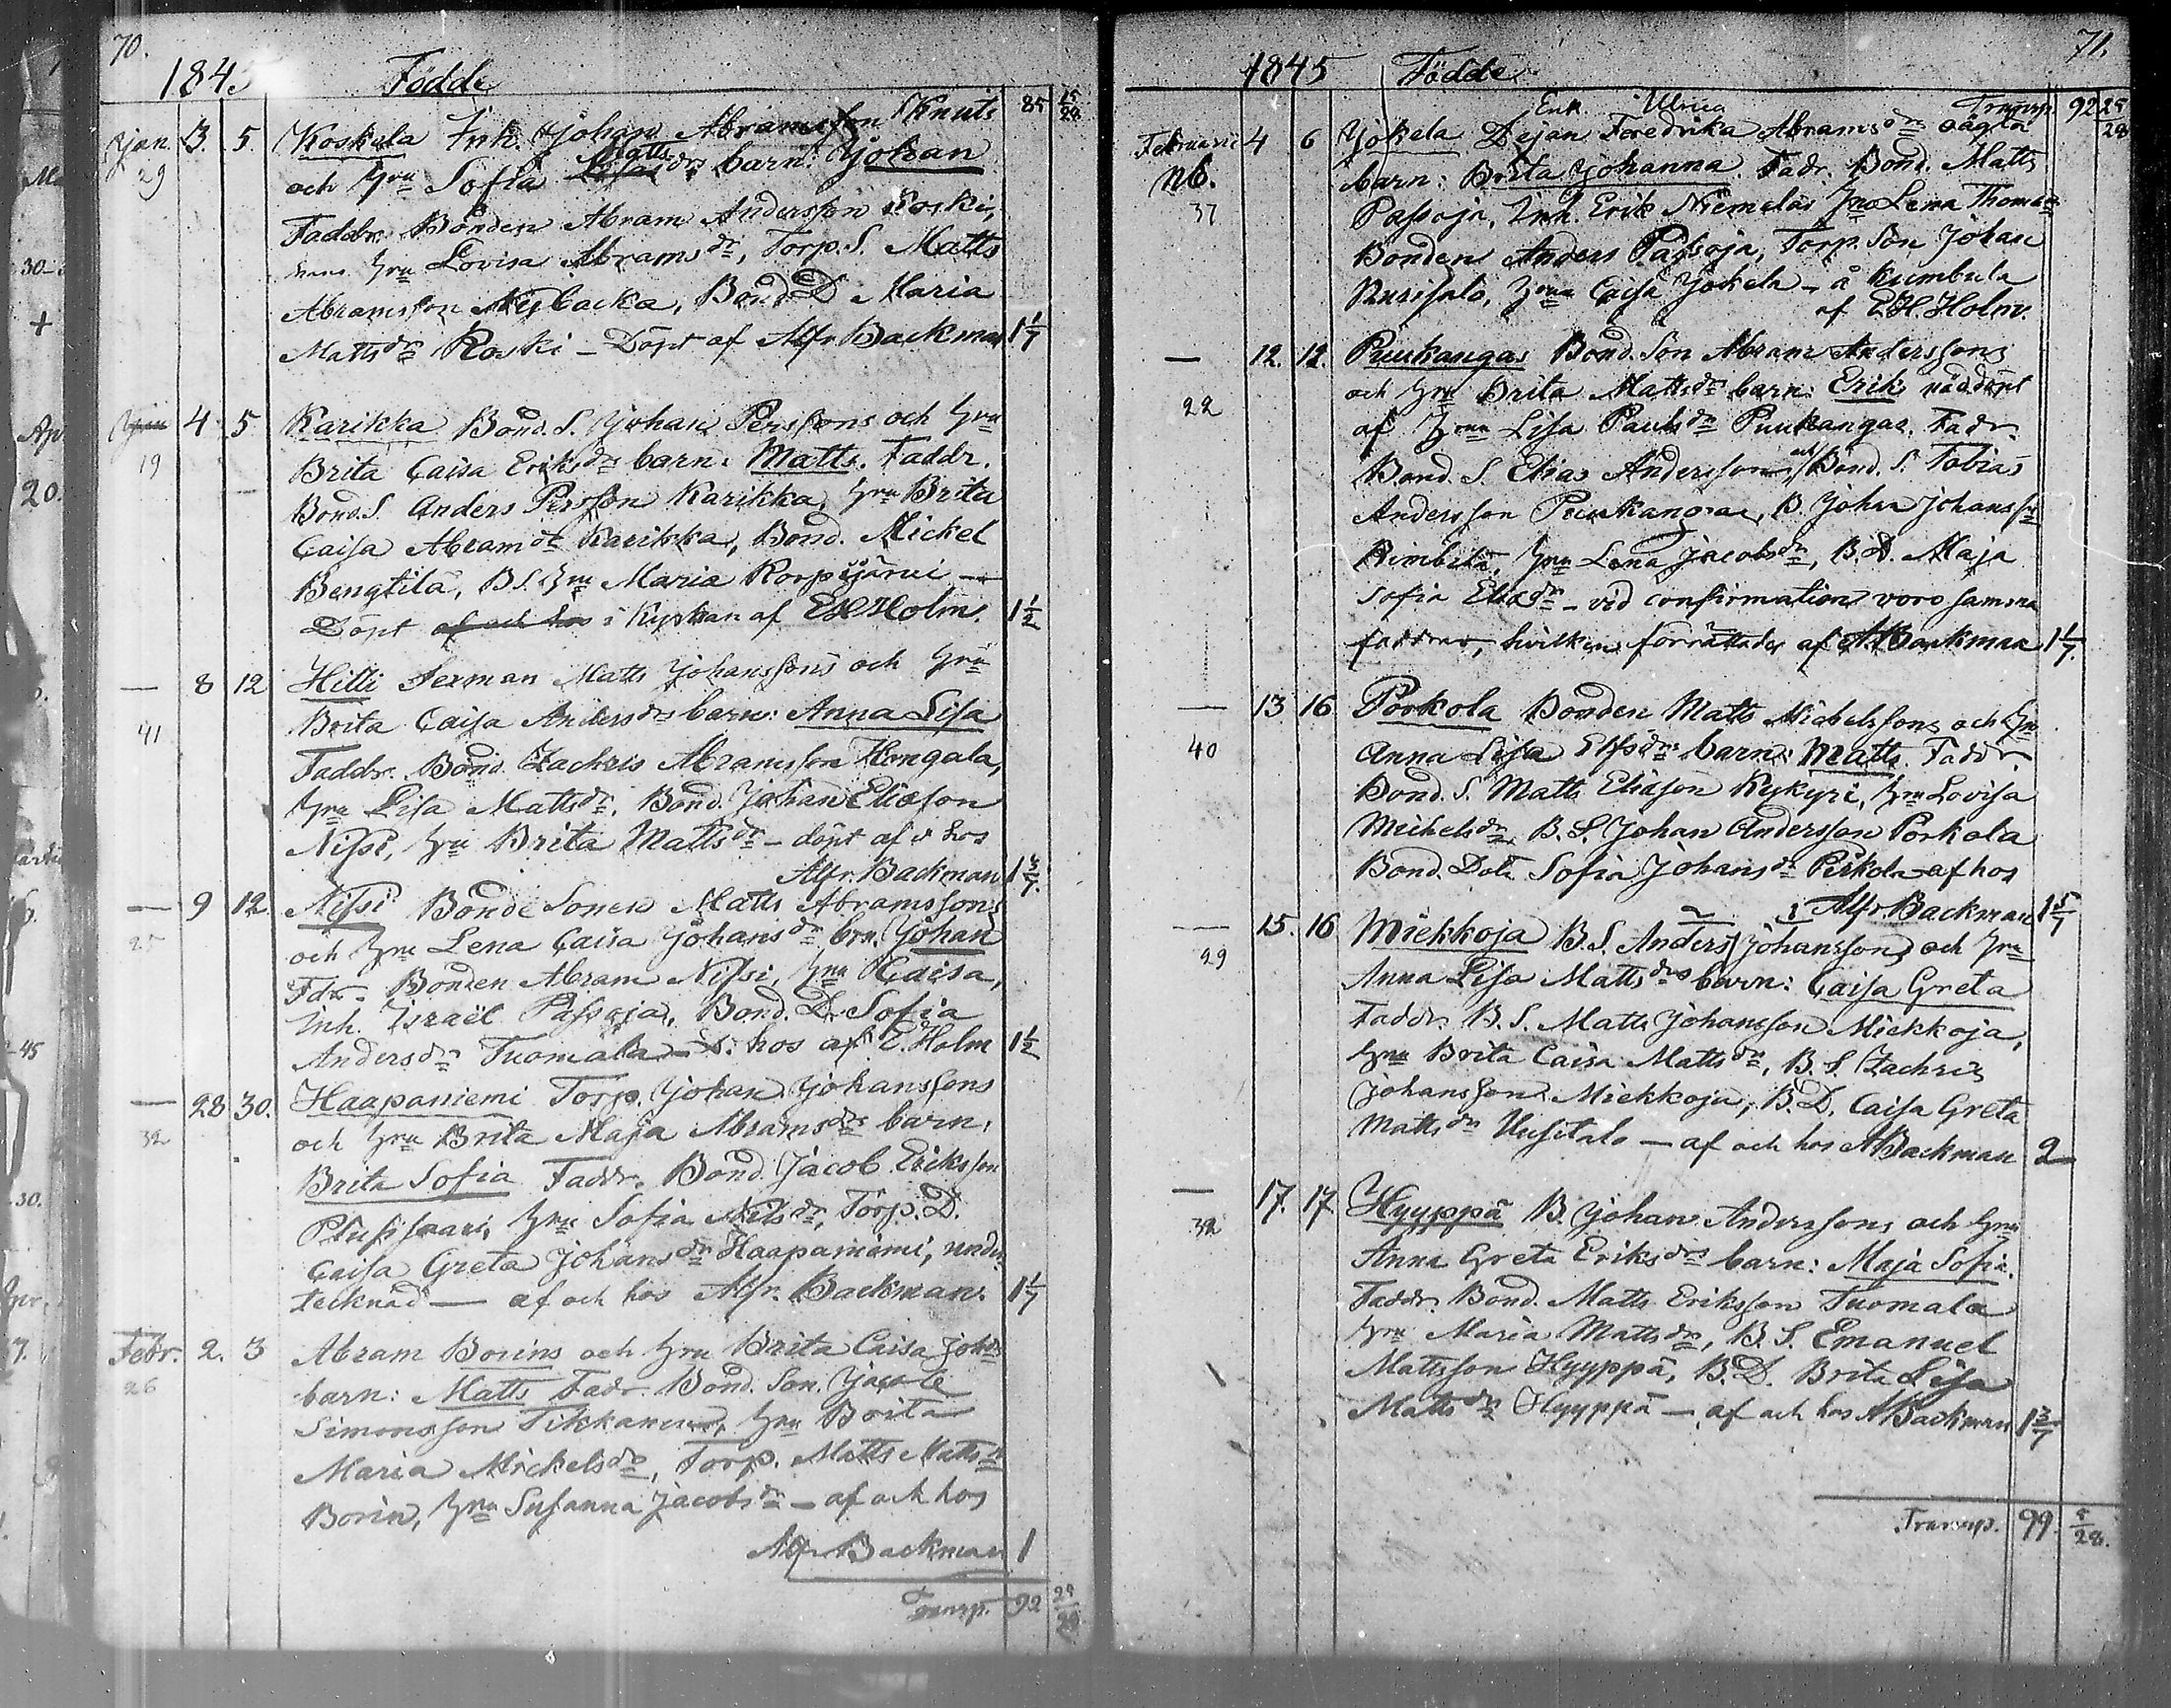 70.
1845 Födde
85 25/28
Jan. 3. 5. Koskela Inh. Johan Abramsson Knuts
29 och Hru Sofia Matts drs barn: Johan
Faddr. Bonden Abram Andersson Koski,
hans Hru Lovisa Abramsdr, Torp. S. Matts
Abramsson Nybacka, Bond. D. Maria
Mattsdr Koski - Döpt af Alfr. Backman 1 1/7
4 5 Karikka Bond. S. Johan Perssons och Hru
19 Brita Caisa Eriksdrs barn: Matts. Faddr.
Bond. S. Anders Persson Karikka, Hru Brita
Caisa Abramdr Karikka, Bond. Mickel
Bengtilä, B.S. Hru Maria Korpijärvi —
Döpt af och hos i Kyrkan af EH Holm. 1 1/2
— 8 12 Hilli Ferman Matts Johanssons och Hru
41 Brita Caisa Andersdrs barn: Anna Lisa
Faddr. Bond. Zachris Abramsson Hongala,
Hru Lisa Mattsdr, Bond. Johan Eliasson
Nissi, Hru Brita Mattsdr - döpt af o hos
Alfr. Backman
— 9 12 Nissi Bonde Sonen Matts Abramssons
25 och Hru Lena Caisa Johansdr brn. Johan
Fdr. Bonden Abram Nissi, Hru Caisa,
Inh. Israël Passoja, Bond. D. Sofia
Andersdr Tuomala - D. hos af E. Holm 1 1/2
— 28 30. Haapaniemi Torp. Johan Johanssons
32 och Hru Brita Maja Abramsdrs barn,
Brita Sofia Faddr. Bond. Jacob Eriksson
Hru Sofia Nilsdr, Torp. D.
Caisa Greta Johansdr Haapaniemi, under
tecknad — af och hos Alfr. Backman. 1 1/7
Febr. 2. 3 Abram Borins och Hru Brita Caisa Johdrs
26 barn: Matts Fadr. Bond. Son. Jacob
Simonsson Tikkanen, Hru Brita
Maria Mickelsdr, Torp. Matts Mattss
Borin, Hru Susanna Jacobsdr - af och hos
Alfr Backman 1
Transp. 92 25/28
71.
1845 Födde
Enk. Ulrica Transp. 92 25/28
Februarii 4 6 Jokela Dejan Fredrika Abramsdrs oägta
nb. barn: Brita Johanna. Fadr. Bond. Matts
37 Passoja, Inh. Erik Niemelä, Hru Lena Thomasdr
Bonden Anders Passoja, Torp. Son Johan
Rurisalo, Hru Caisa Jokela - å Kumbula
af E.H. Holm.
— 12. 12. Puukangas Bond. Son Abram Anderssons
22 och Hru Brita Mattsdr barn: Erik nöddöpt
af Hru Lisa Paulsdr Puukangas. Fadr.
Bond. S. Elias Andersson, och Bond. S. Tobias
Andersson Puukangas, B. Johan Johansson
Hru Lena Jacobsdr, B.D. Maja
Sofia Eliasdr - vid confirmation voro samma
faddrar, hvilken förrättades af A. Backman 1 1/7.
— 13 16 Porkola Bonden Matts Michelssons och Hru
40 Anna Lisa drs barn: Matts. Faddr.
Bond. S. Matts Eliasson Kykyri, Hru Lovisa
Michelsdr, B.S. Johan Andersson Porkola
Bond. Dotr Sofia Johansdr Porkola - af hos
Alfr. Backman 1 5/7
— 15. 16 Miekkoja B.S. Anders Johanssons och Hru
29 Anna Lisa Mattsdrs barn: Caisa Greta
Faddr. B.S. Matts Johansson Miekkoja,
Hru Brita Caisa Mattsdr, B.S. Zachris
Johansson Miekkoja, B.D. Caisa Greta
Mattsdr Uusitalo — af och hos ABackman 2
— 17. 17 Hyyppä B. Johan Anderssons och Hru
32 Anna Greta Eriksdrs barn: Maja Sofia.
Faddr. Bond. Matts Eriksson Tuomala
Hru Maria Mattsdr, B.S. Emanuel
Mattsson Hyyppä, B.D. Brita Lisa
Mattsdr Hyyppä — af och hos ABackman 1 3/7
Transp. 99 5/28.